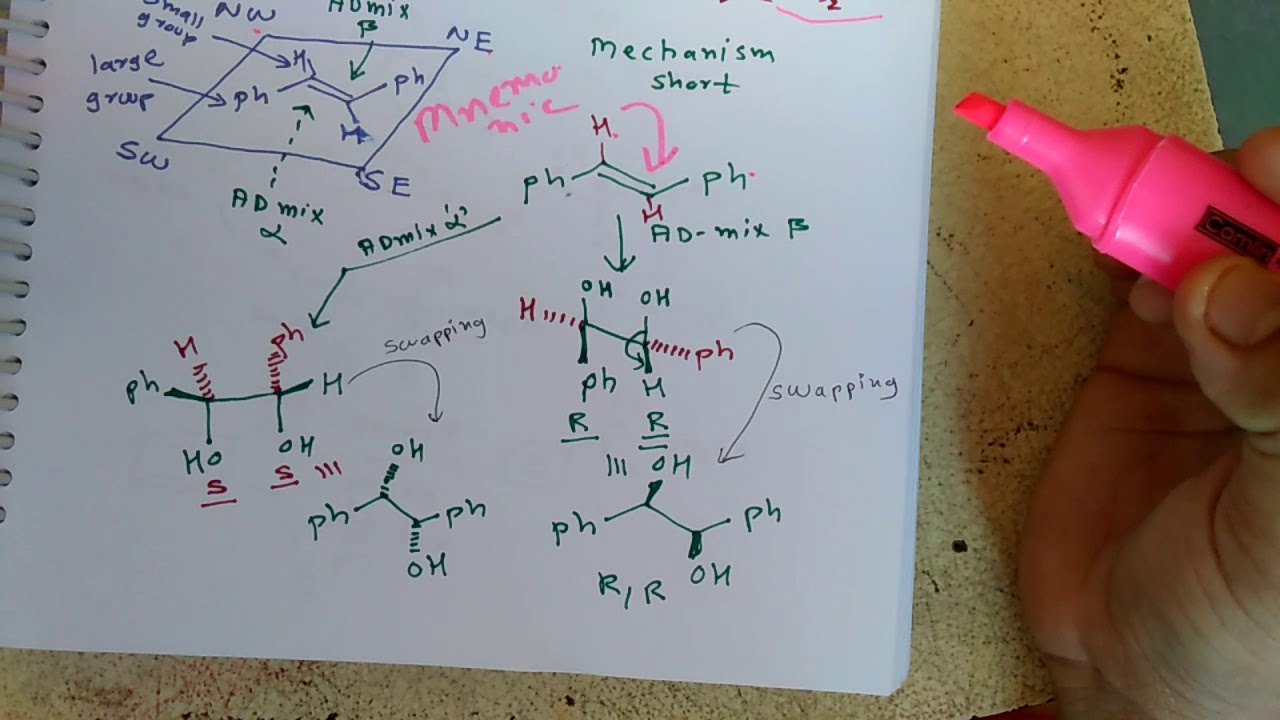 small
group
NW
ADmix
β
NE
H
large
group
ph
ph
H
SW
SE
AD mix
α
Mnemo
nic
Mechanism
short
H
ph
ph
H
ADmix 'α'
AD-mix β
H
ph
ph
H
HO
OH
S
S
swapping
OH
ph
ph
OH
OH
OH
H
ph
ph
H
R
R
swapping
OH
ph
ph
OH
R/R